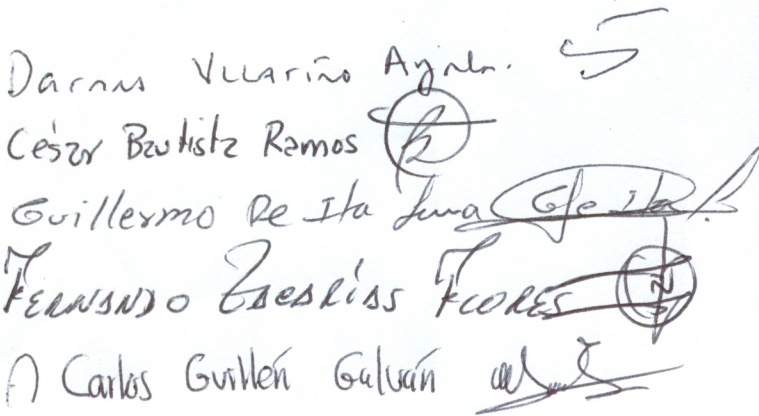 Darnes Vilariño Ayala.
César Bautista Ramos
Guillermo De Ita Luna G De Ita L.
FERNANDO ZACARÍAS FLORES
A Carlos Guillén Galván